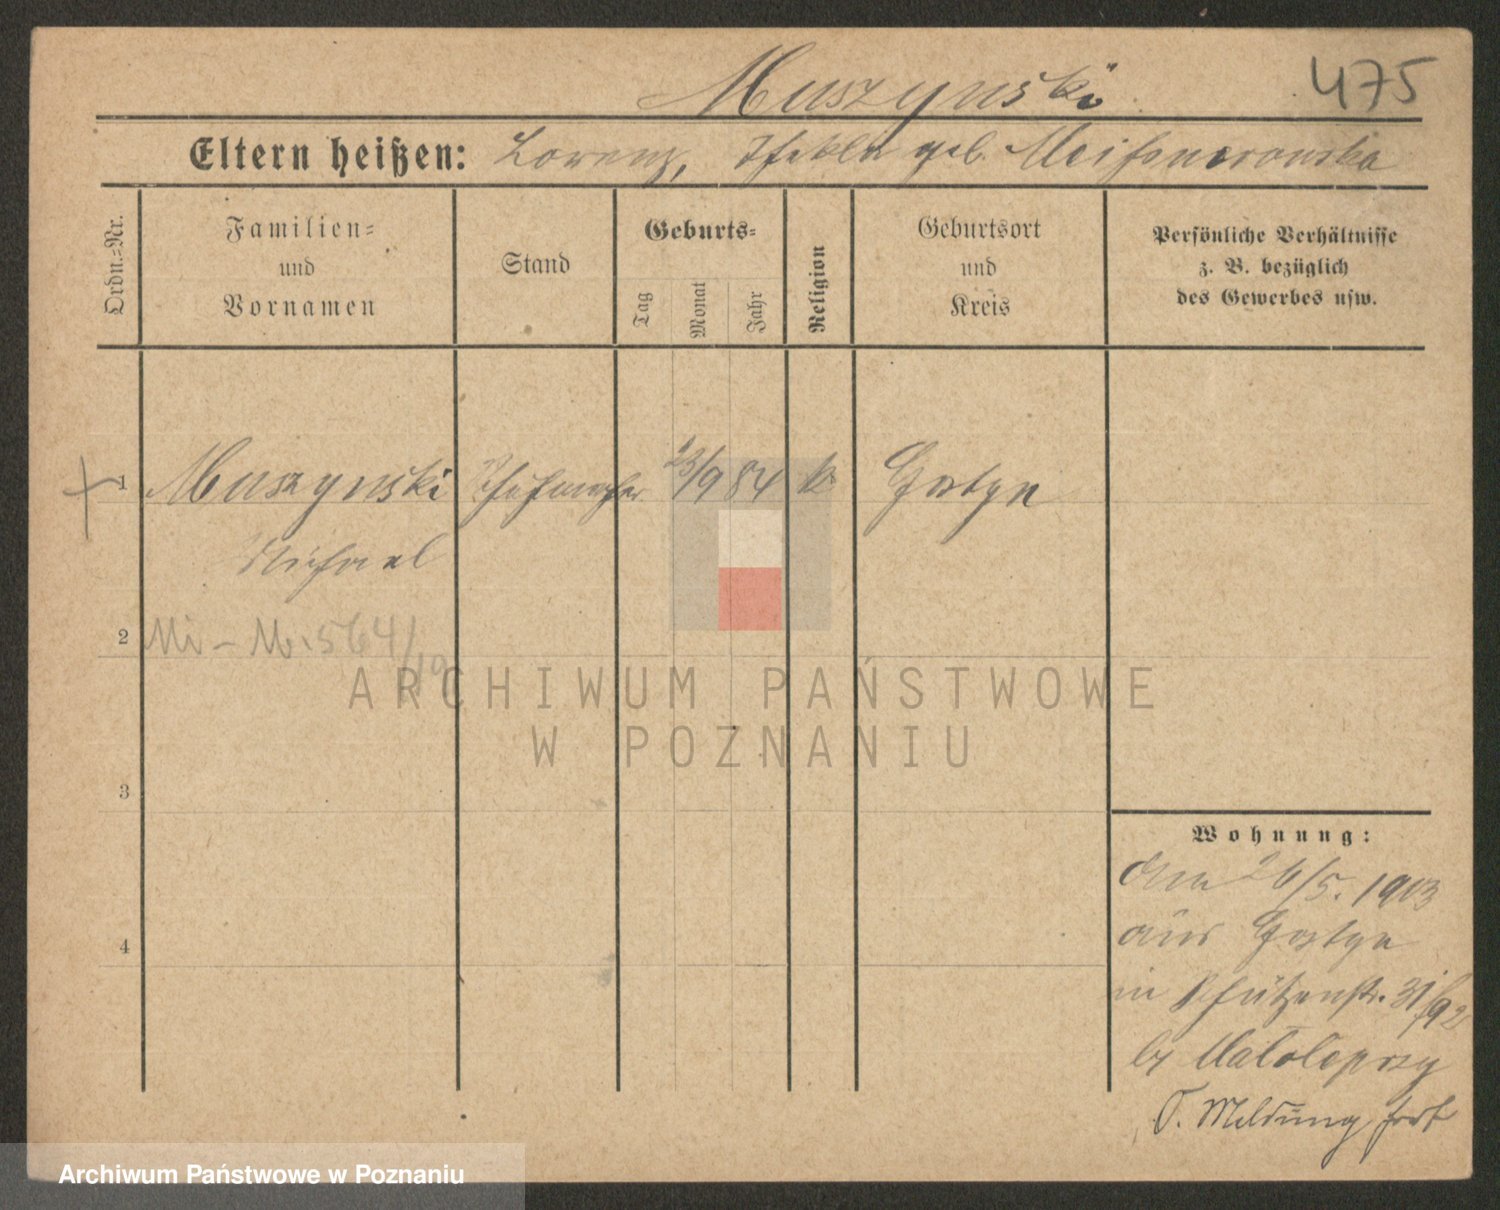 Muszynski 475
Eltern heißen: Lorenz, Thekla geb.
Ordn.=Nr.
Familien=
und
Vornamen
Stand
Geburts=
Tag
Monat
Jahr
Religion
Geburtsort
und
Kreis
Persönliche Verhältnisse
z. B. bezüglich
des Gewerbes usw.
1 Muszynski Schuhmacher 23/9 84 k. Gostyn
Michael
2 Mi - M. 564/19
3
4
Wohnung:
den 26/5. 1903
aus Gostyn
in Schützenstr. 31/
by Malolepszy
O. Meldung fort
ARCHIWUM PAŃSTWOWE
W POZNANIU
Archiwum Państwowe w Poznaniu